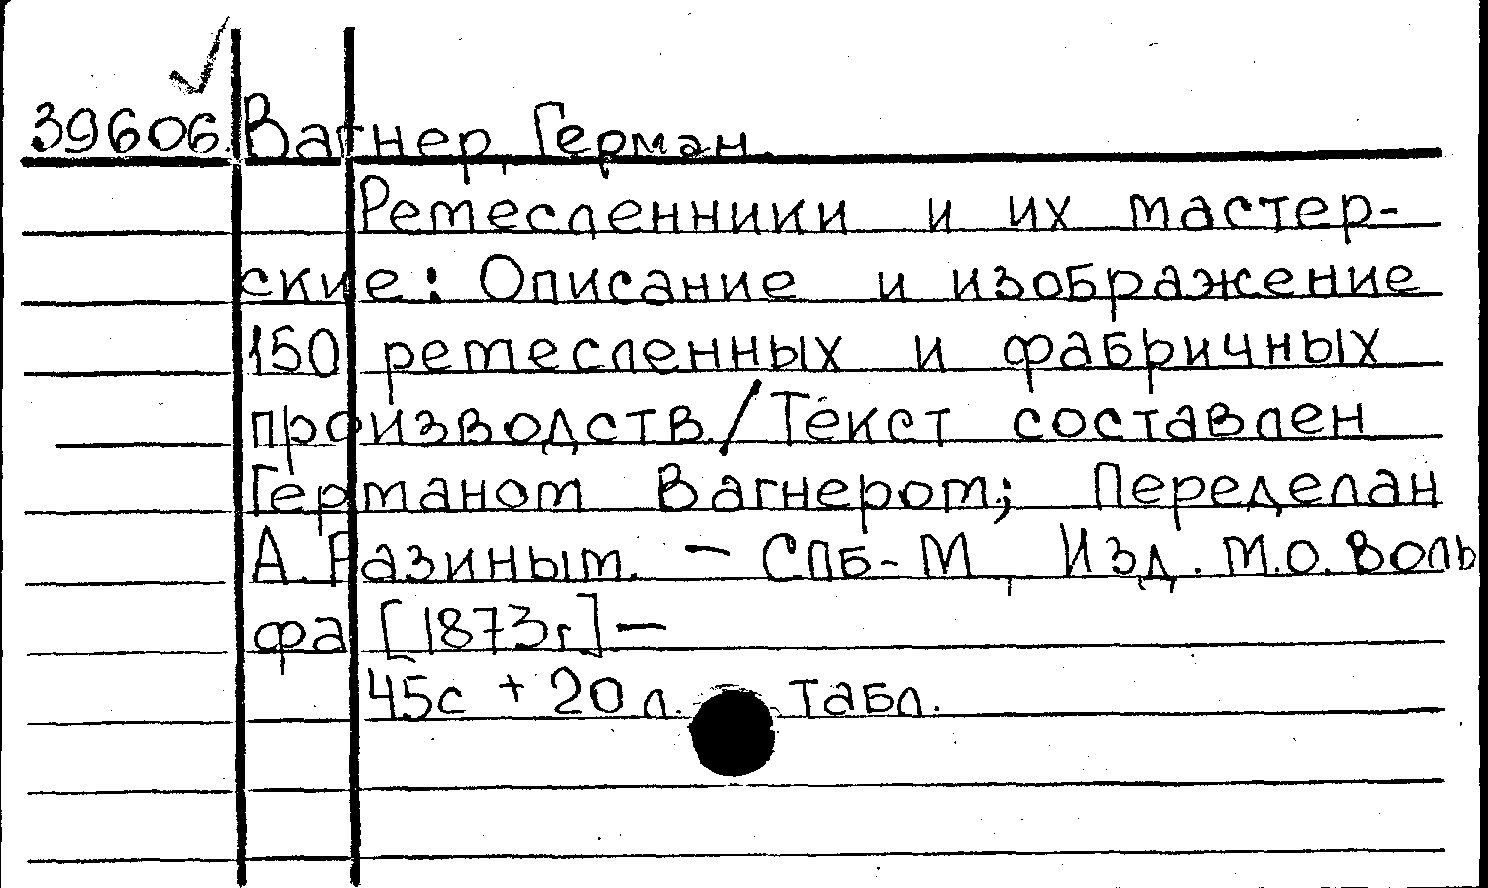 39606. Вагнер, Герман.
Ремесленники и их мастер-
ские: Описание и изображение
150 ремесленных и фабричных
производств./Текст составлен
Германом Вагнером; Переделан
А. Разиным. — СПб-М, Изд. М.О. Воль
фа [1873г.] —
45с + 20 л. табл.